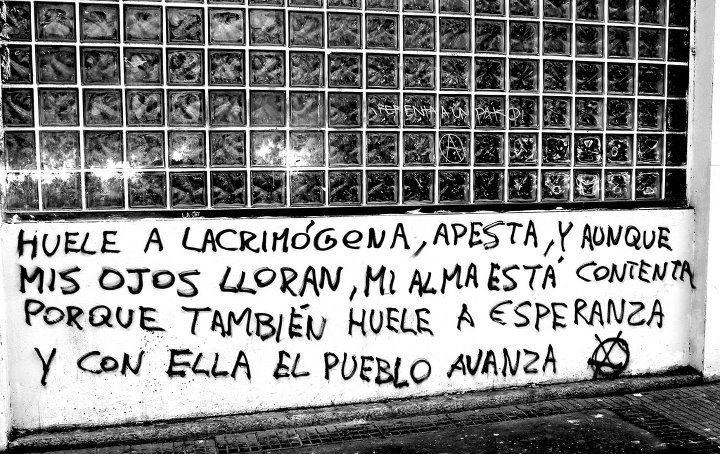 HUELE A LACRIMÓGENA, APESTA, Y AUNQUE
MIS OJOS LLORAN, MI ALMA ESTÁ CONTENTA
PORQUE TAMBIÉN HUELE A ESPERANZA
Y CON ELLA EL PUEBLO AVANZA